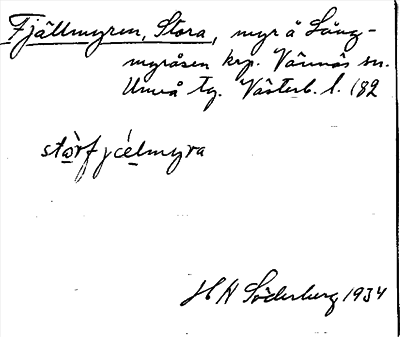 Fjällmyren, Stora, myr å Lång-
myråsen krp. Vännäs sn.
Umeå tg. Västerb. l. 182
stòrfjćelmyra
H N Söderberg 1934